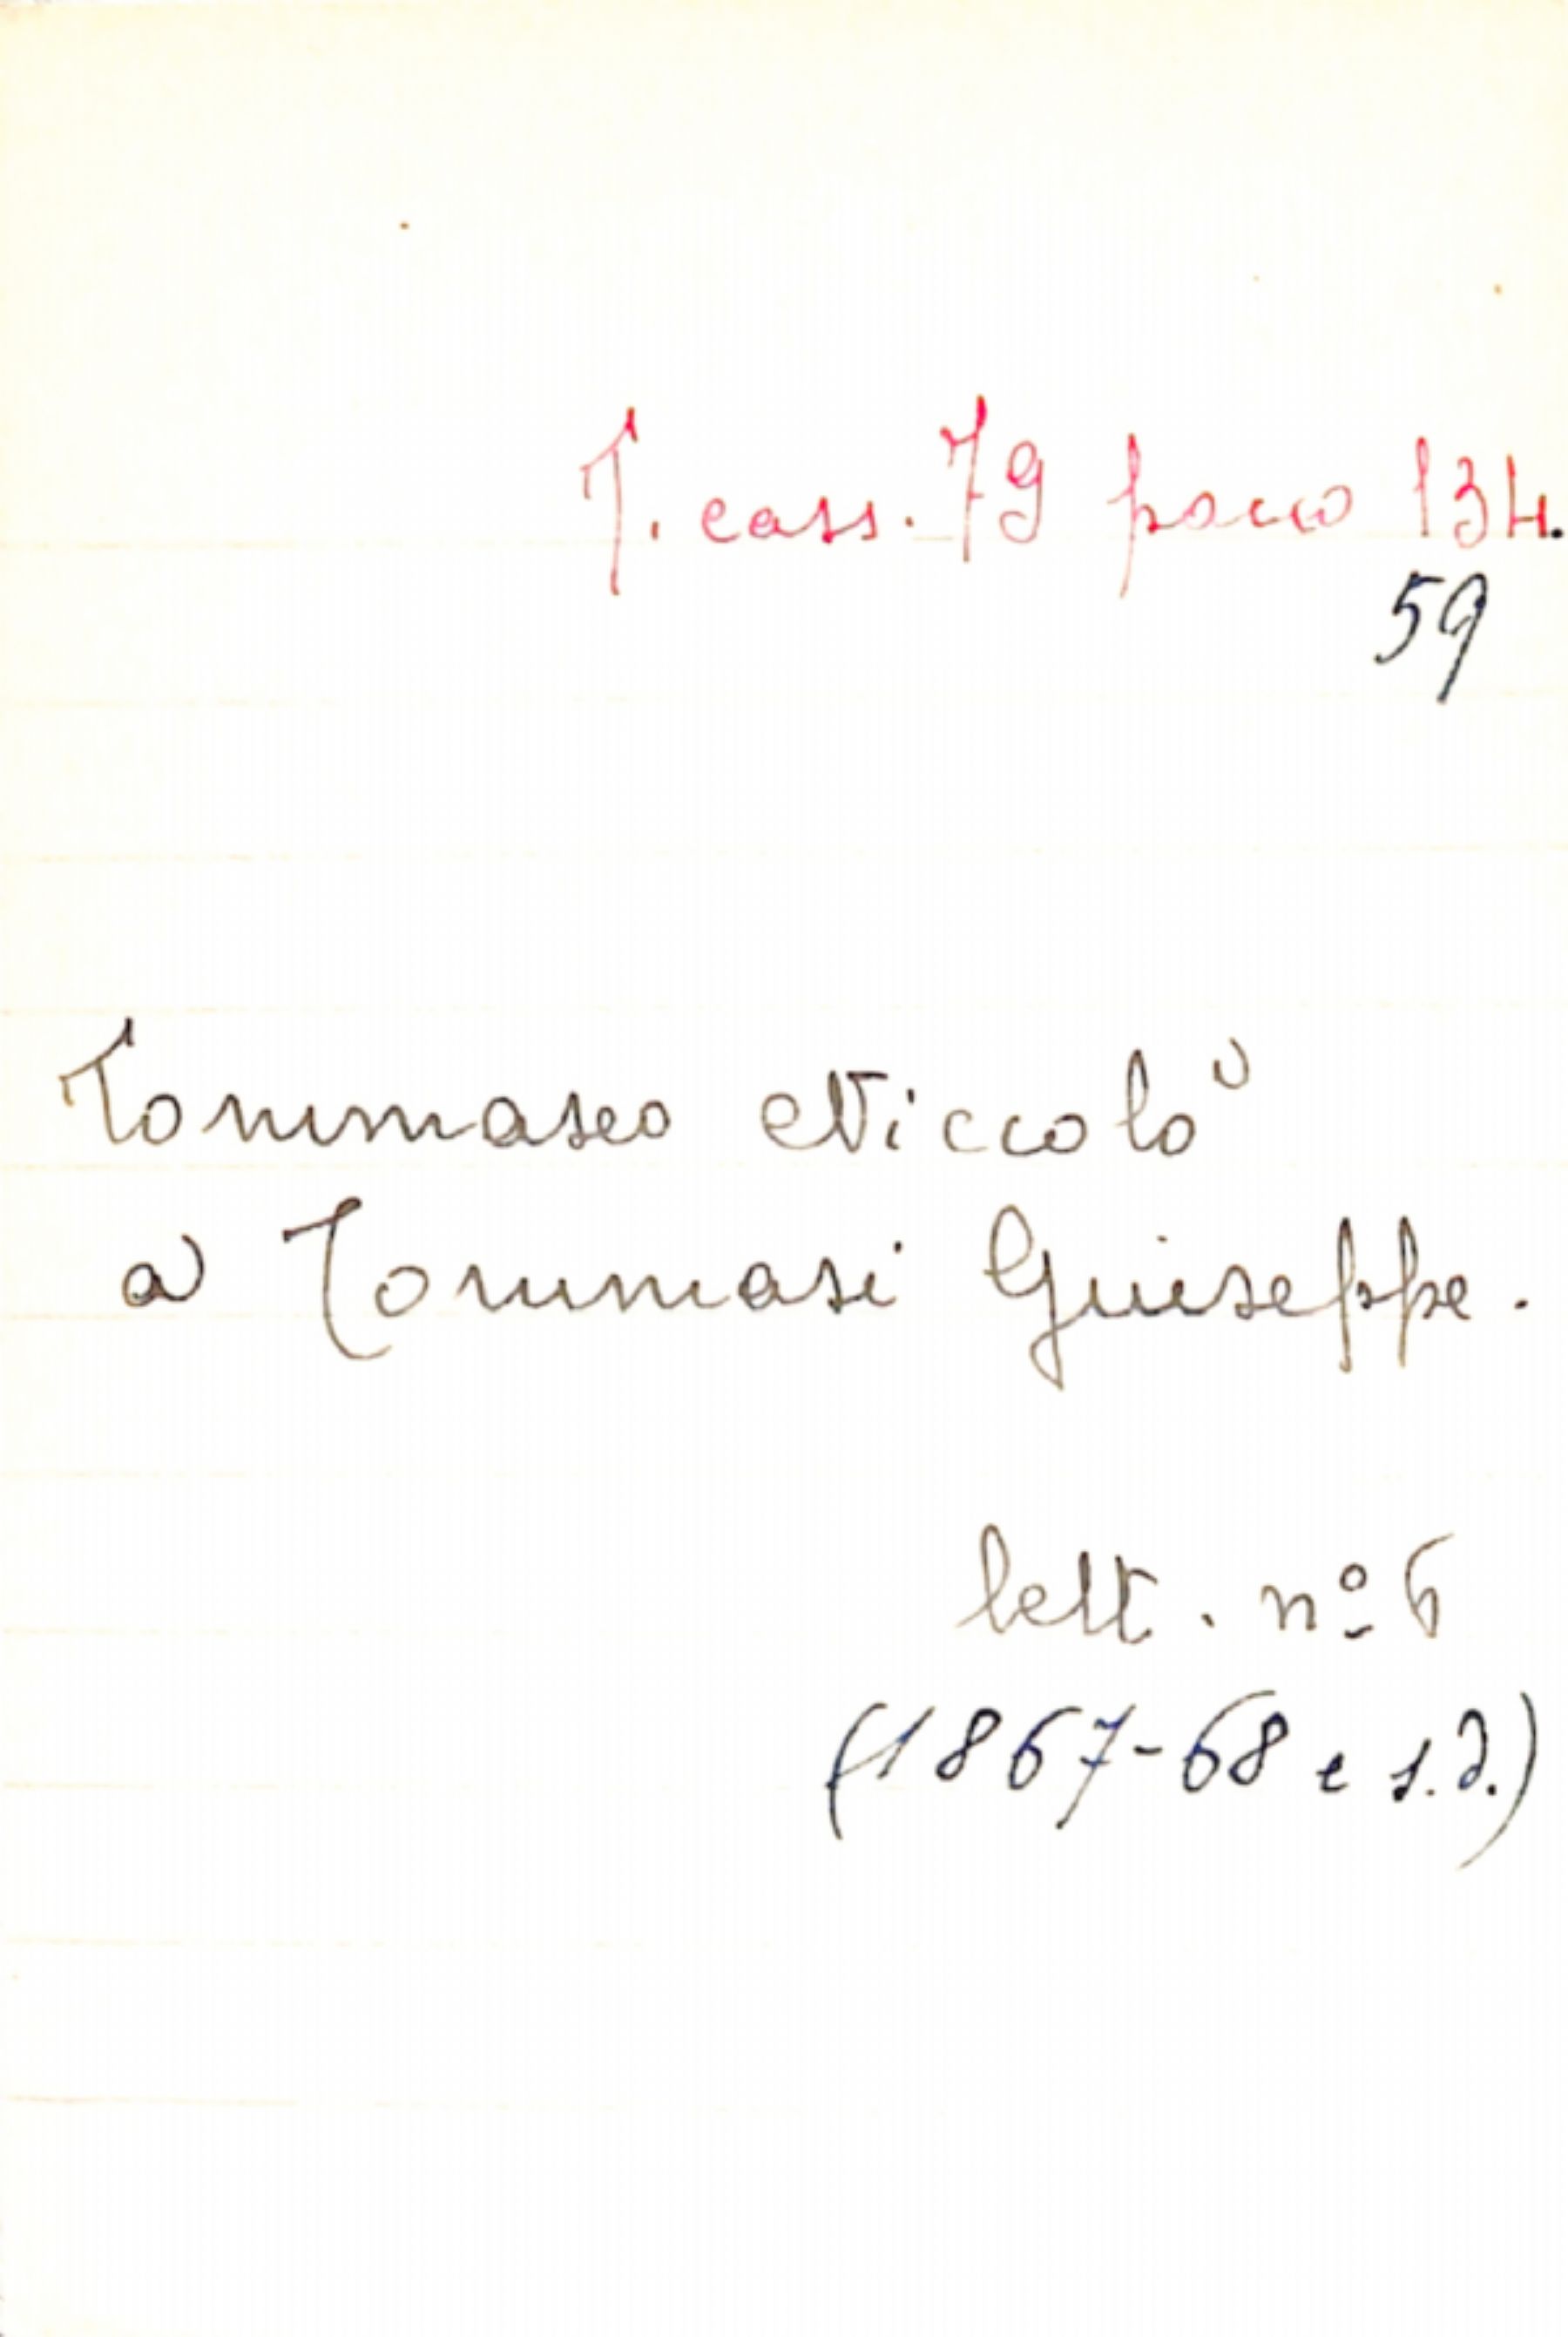 T. cass. 79 pacco 134.
59
Tommaseo Niccolò
a Tommasi Giuseppe.
lett. nº 6
(1867-68 e s.d.)